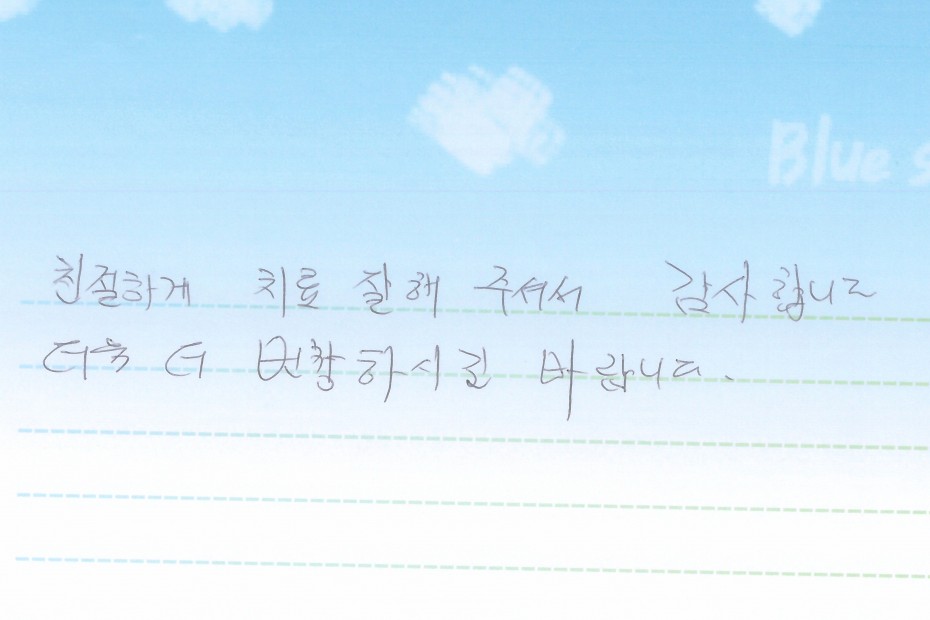 Blue s
친절하게 치료 잘해 주셔서 감사합니다
더욱 더 번창하시길 바랍니다.